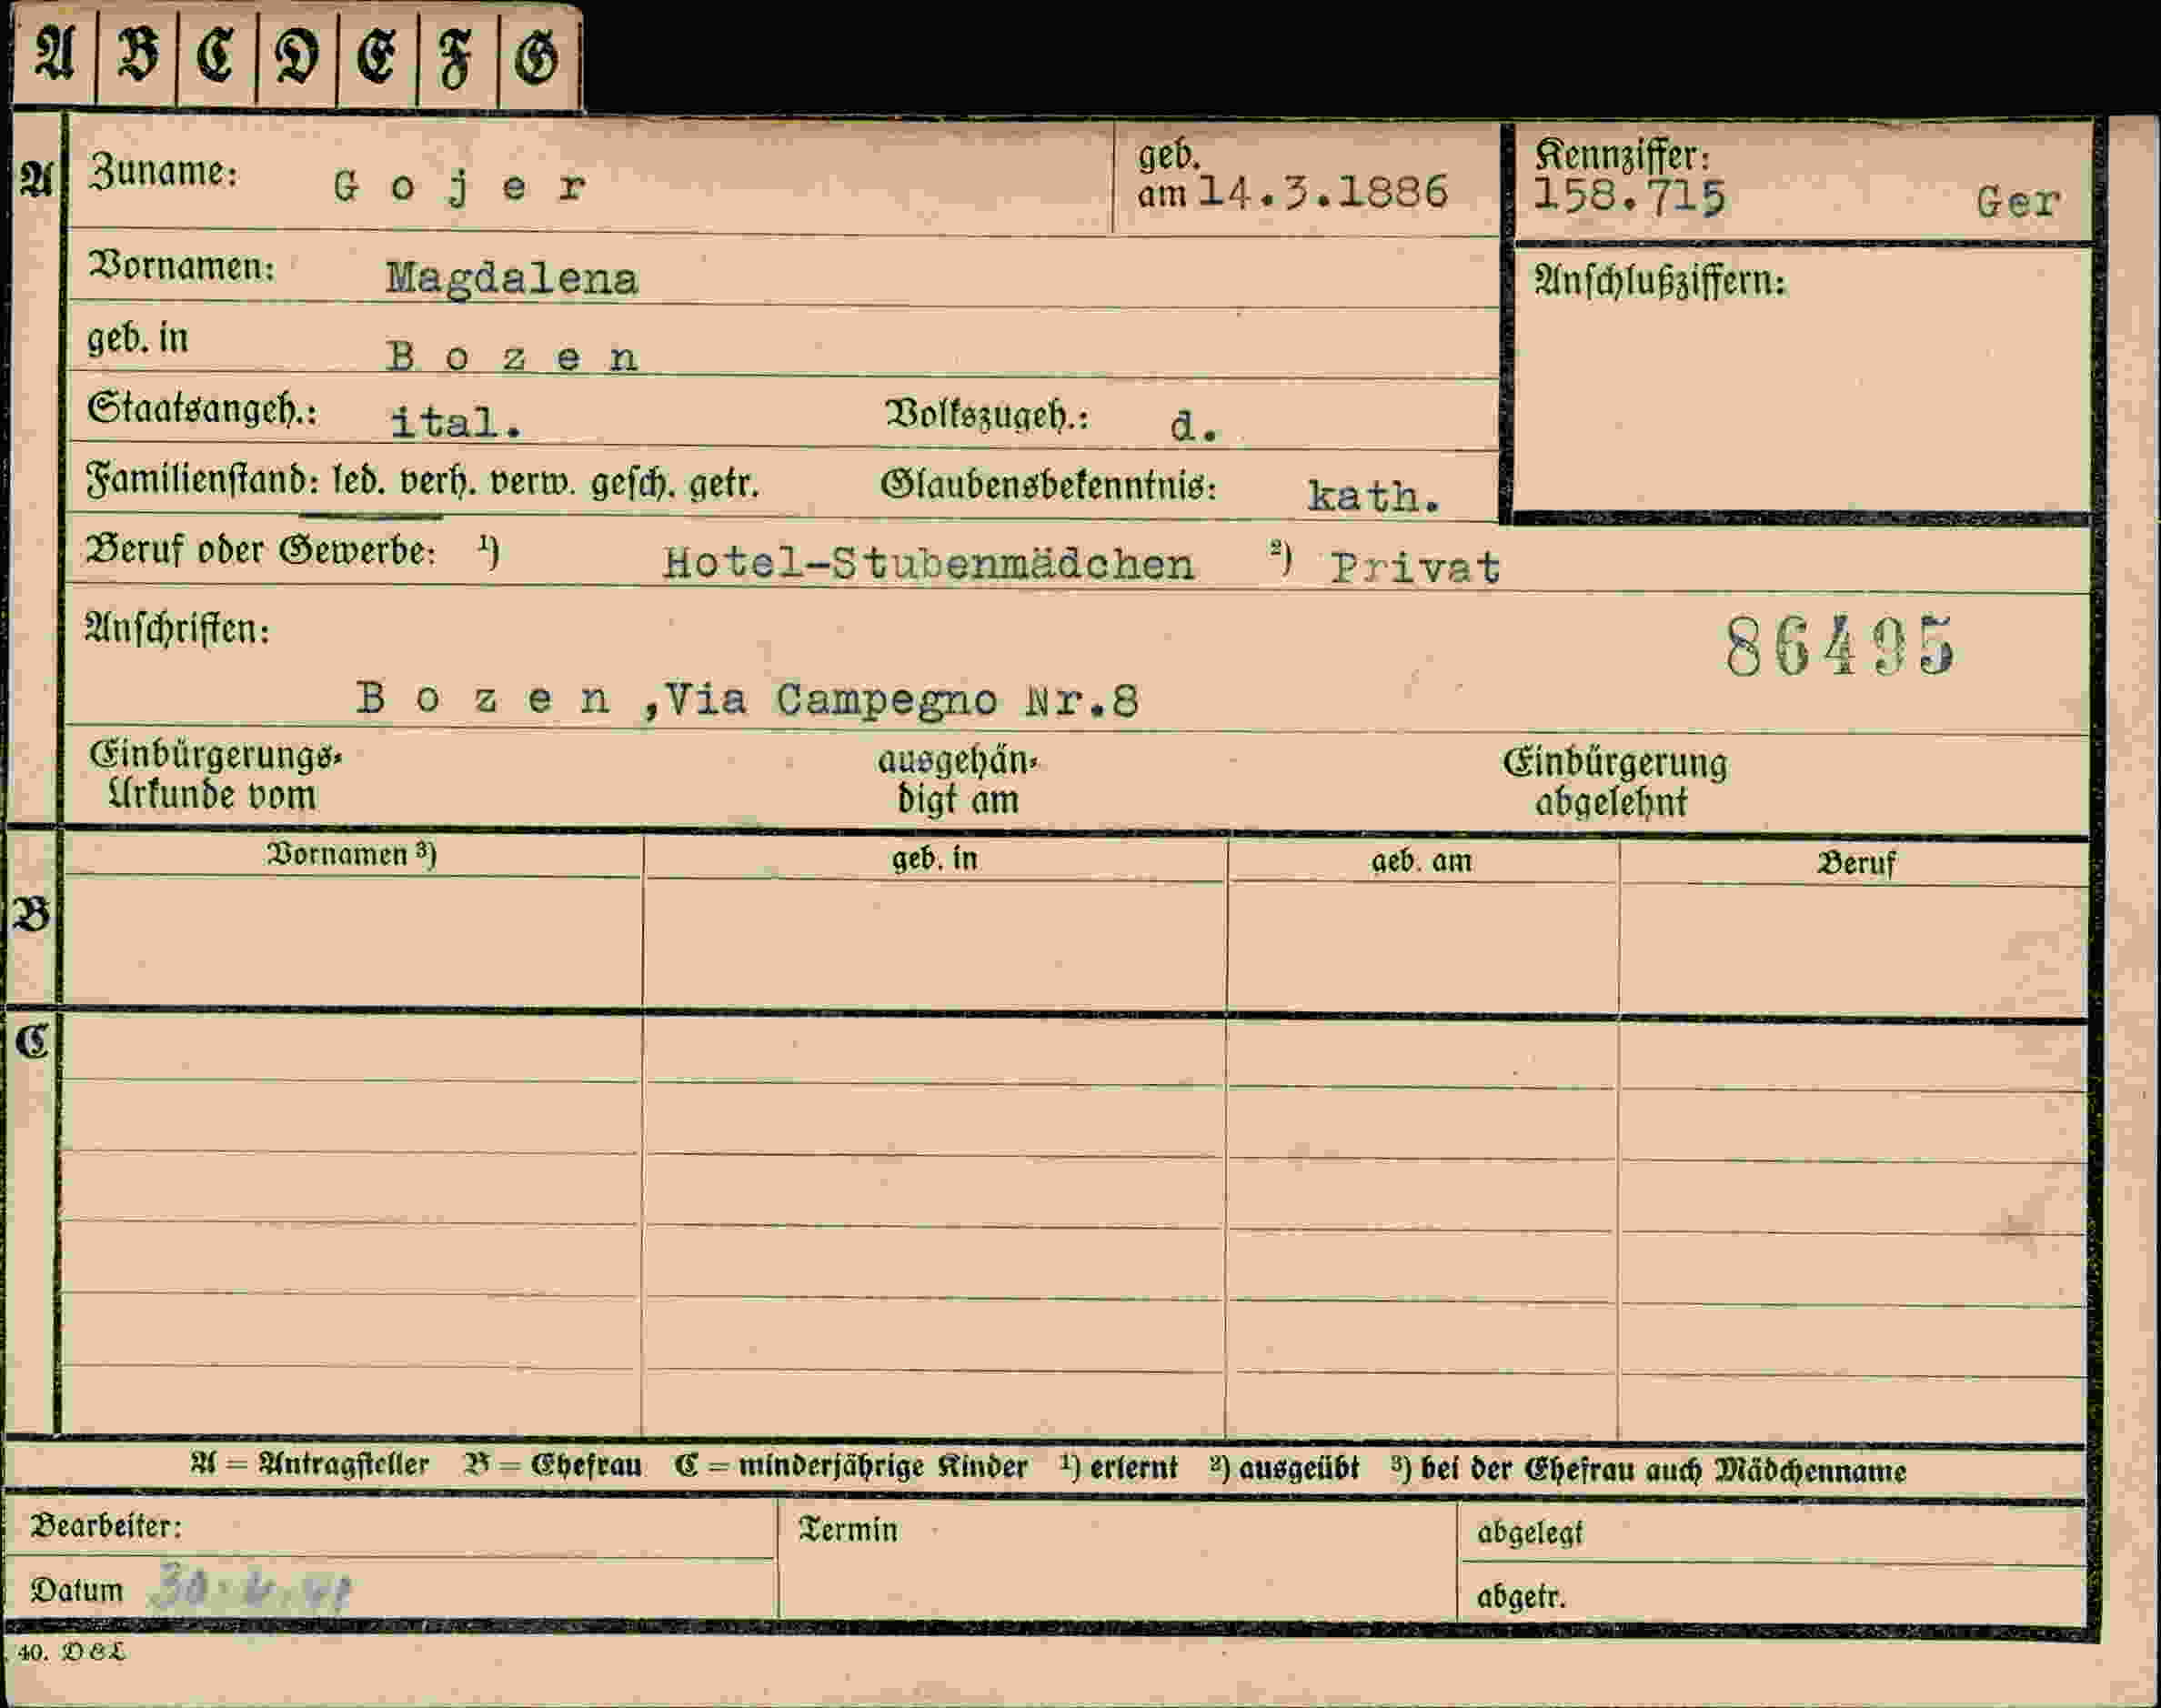 A B C D E F G
A
Zuname: Gojer
geb. am 14.3.1886
Kennziffer: 158.715 Ger
Vornamen: Magdalena
Anschlußziffern:
geb. in Bozen
Staatsangeh.: ital. Volkszugeh.: d.
Familienstand: led. verh. verw. gesch. getr. Glaubensbekenntnis: kath.
Beruf oder Gewerbe: ¹) Hotel-Stubenmädchen ²) Privat
Anschriften:
86495
Bozen ,Via Campegno Nr.8
Einbürgerungs- ausgehän- Einbürgerung
Urkunde vom digt am abgelehnt
Vornamen ³) geb. in geb. am Beruf
B
C
A = Antragsteller B = Ehefrau C = minderjährige Kinder ¹) erlernt ²) ausgeübt ³) bei der Ehefrau auch Mädchenname
Bearbeiter: Termin abgelegt
Datum abgetr.
40. D&L